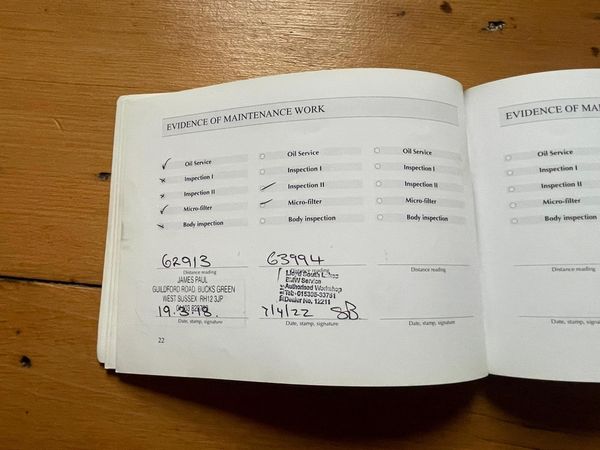 EVIDENCE OF MAINTENANCE WORK
✓ Oil Service
x Inspection I
x Inspection II
✓ Micro-filter
x Body inspection
62913
Distance reading
JAMES PAUL
GUILDFORD ROAD, BUCKS GREEN
WEST SUSSEX RH12 3JP
19.3.98.
Date, stamp, signature
Oil Service
Inspection I
Inspection II
Micro-filter
Body inspection
63994
Distance reading
BMW Service
Authorised Workshop
Dealer No. 12211
7/4/22 SB
Date, stamp, signature
Oil Service
Inspection I
Inspection II
Micro-filter
Body inspection
Distance reading
Date, stamp, signature
22
EVIDENCE OF MA
Oil Service
Inspection I
Inspection II
Micro-filter
Body inspection
Distance reading
Date, stamp, signature